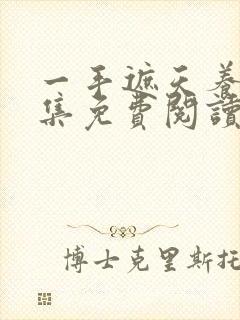 一手遮天養
集免費閱讀
博士克里斯托